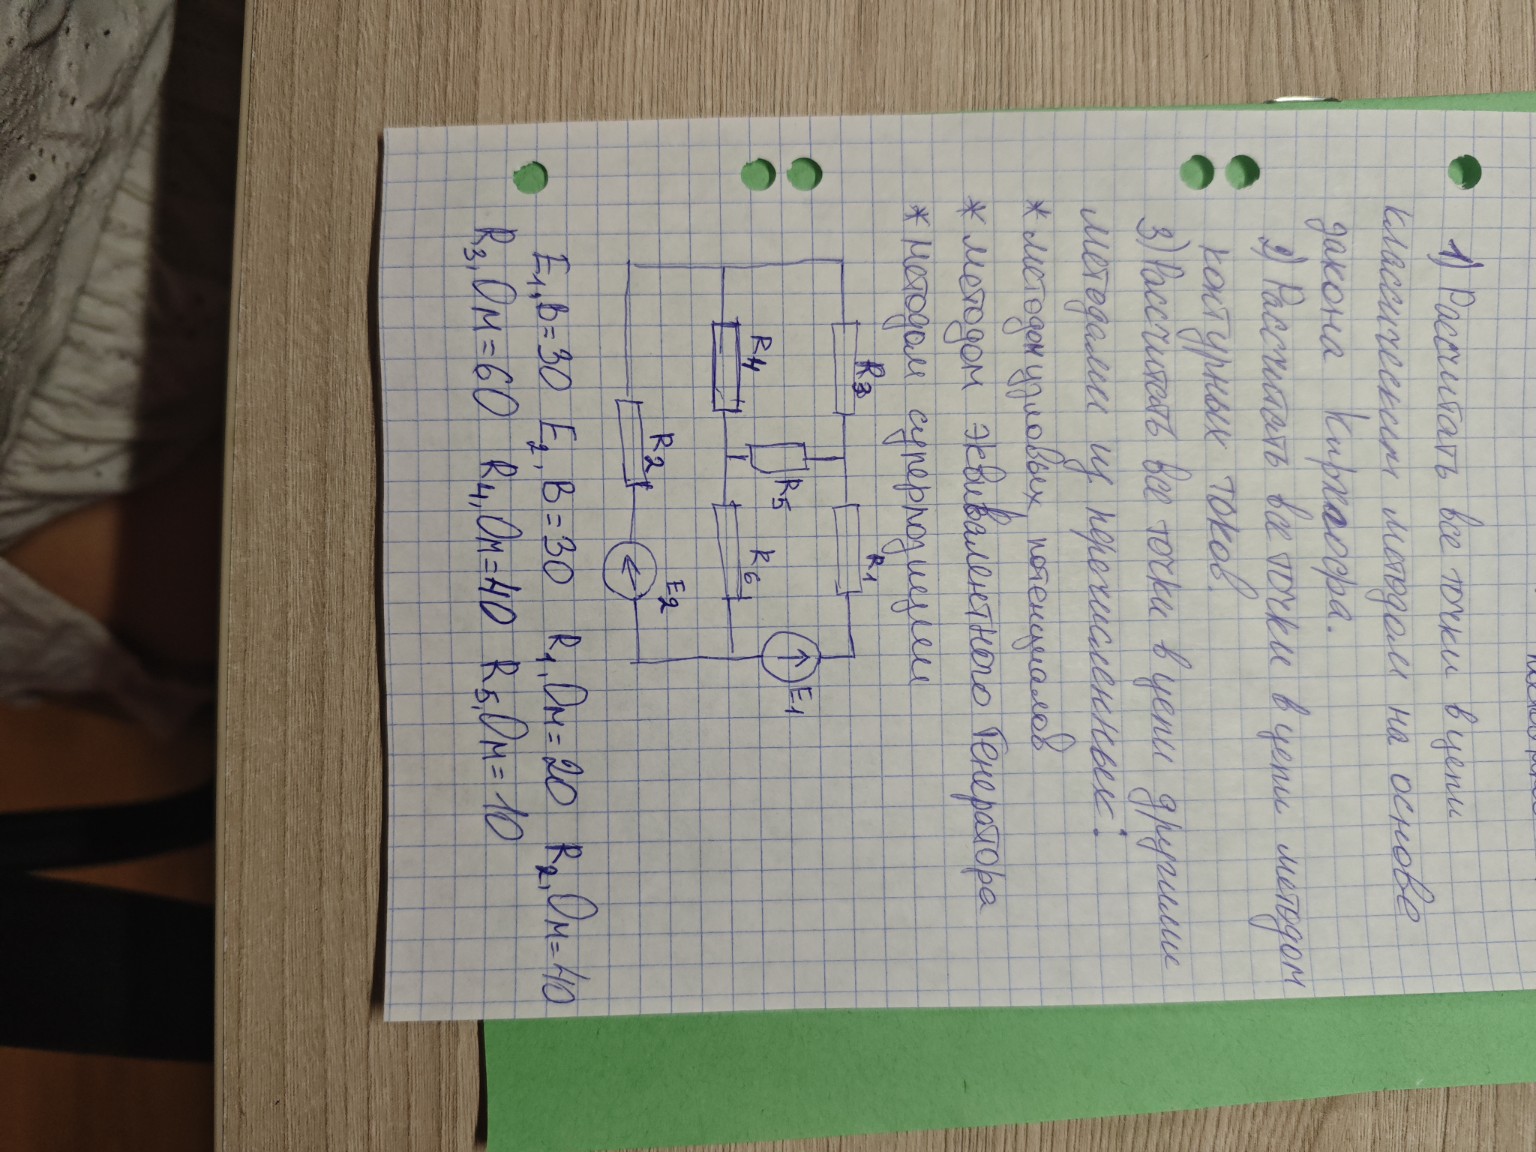 1) Рассчитать все точки в цепи
классическим методом на основе
закона Кирхгофра.
2) Рассчитать все точки в цепи методом
контурных токов.
3) Рассчитать все точки в цепи другими
методами из перечисленных:
* методом узловых потенциалов
* методом эквивалентного генератора
* методом суперпозицией
R3
R1
E1
R4
R5
R6
R2
E2
E1,В=30 E2,В=30 R1,Ом=20 R2,Ом=40
R3,Ом=60 R4,Ом=40 R5,Ом=10